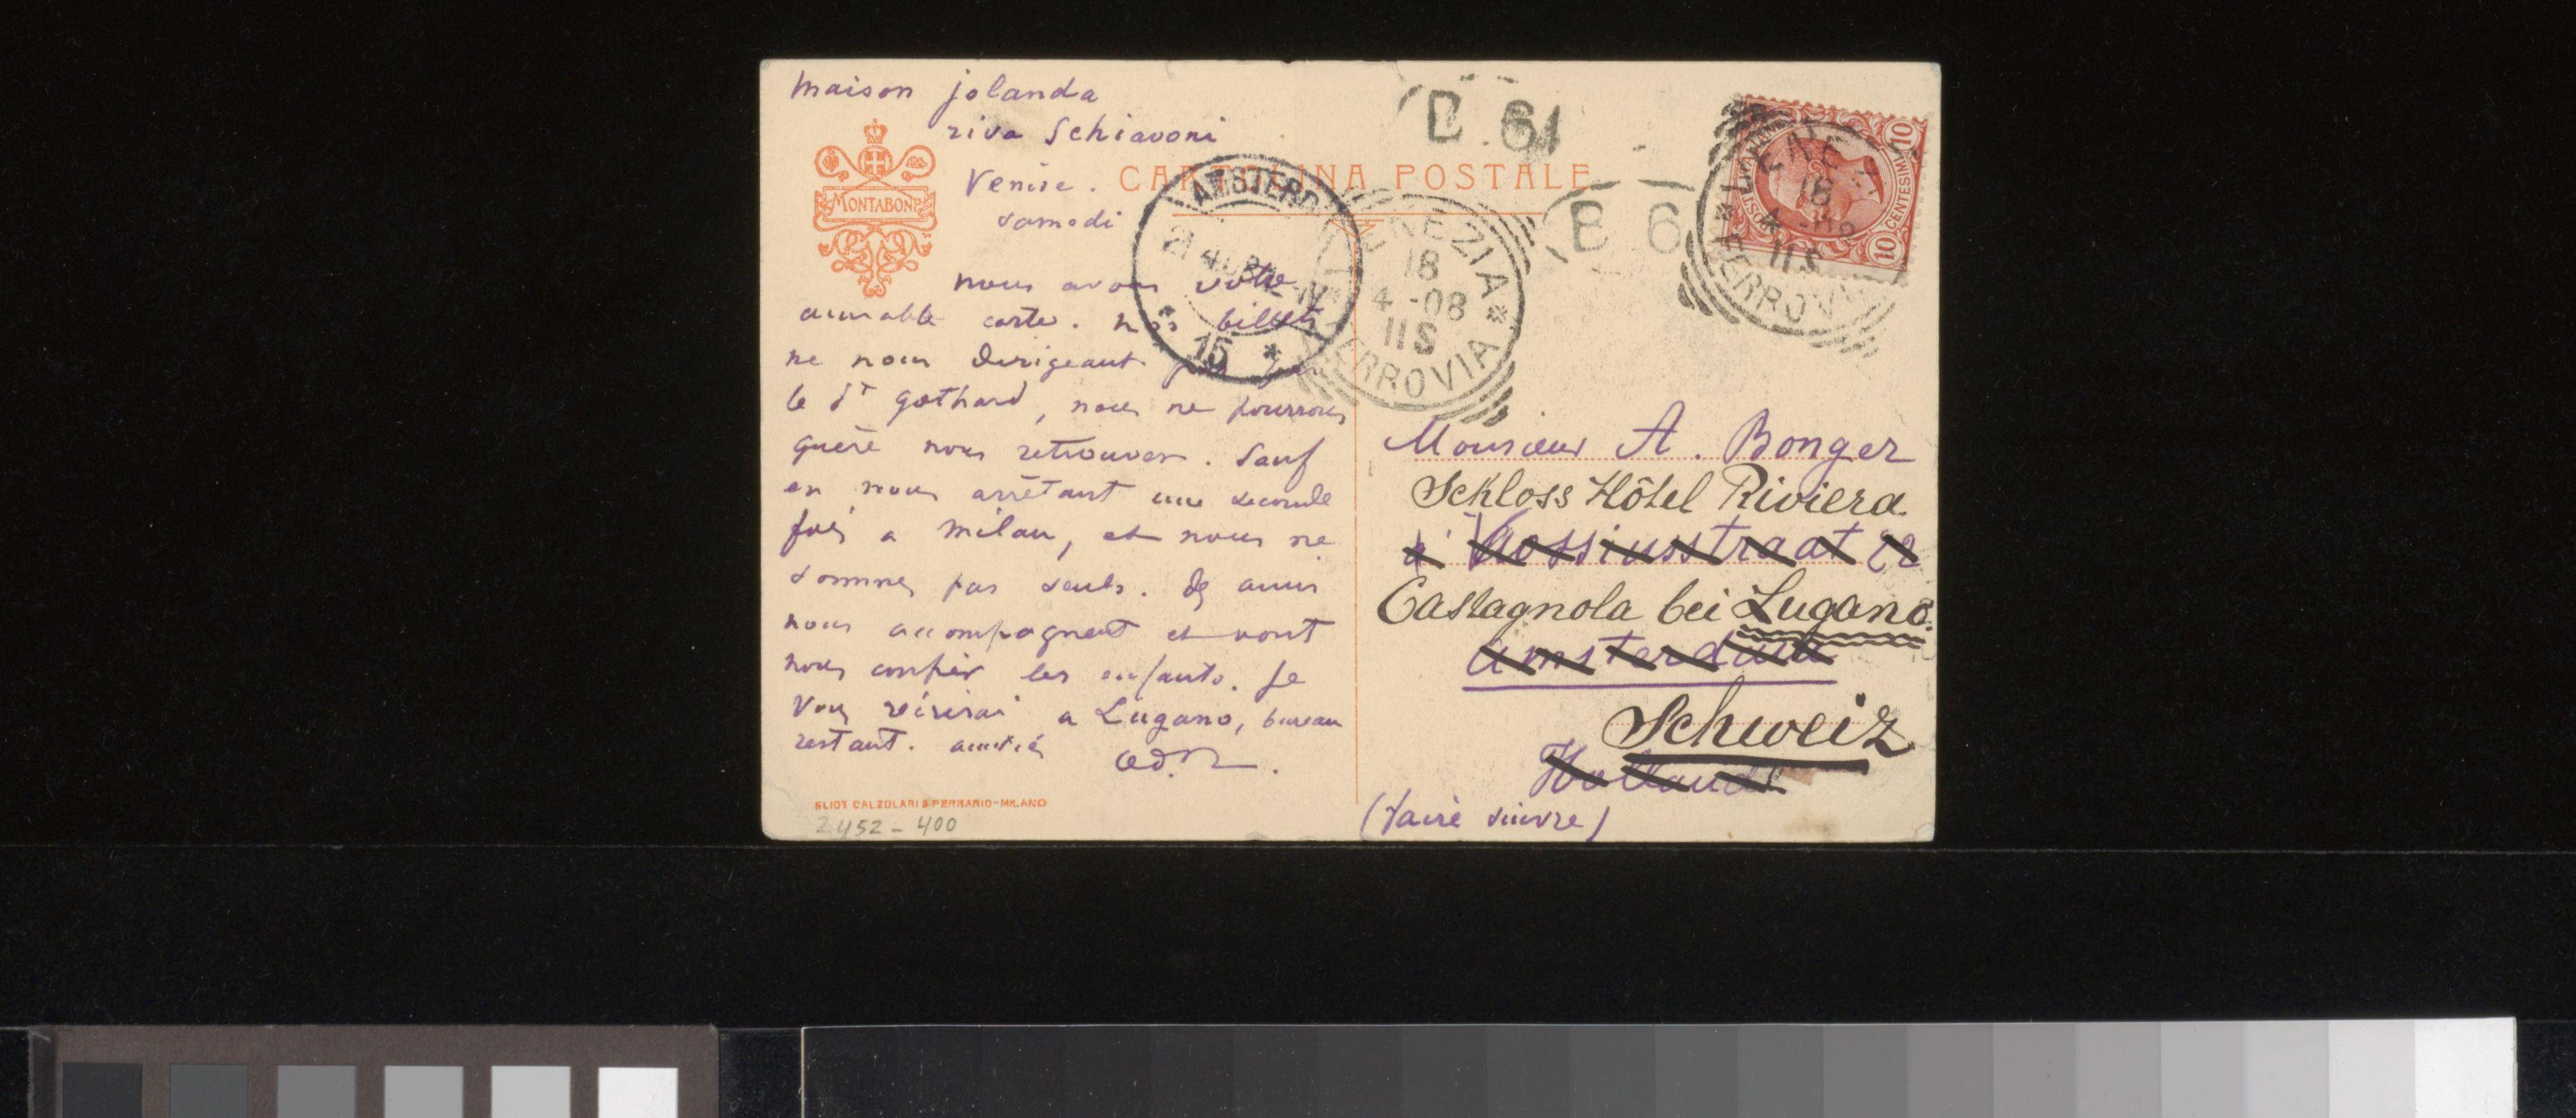 maison jolanda
riva Schiavoni
Venise.
samedi
MONTABONE
CARTOLINA POSTALE
nous avons votre
aimable carte. nos billets
ne nous dirigeant pas par
le St gothard, nous ne pourrons
guère nous retrouver. Sauf
en nous arrêtant une seconde
fois a milan, et nous ne
sommes pas seuls. des amis
nous accompagnent et vont
nous confier les enfants. Je
vous récrirai a Lugano, bureau
restant. amitiés
OD.R.
ELIOT CALZOLARI & FERRARIO-MILANO
2452-400
B 61
B 6
AMSTERD
21 4 08
15 *
VENEZIA
18
4 -08
11S
FERROVIA
18
4 -08
11S
FERROVIA
10 CENTESIMI 10
Monsieur A. Bonger
Schloss Hôtel Riviera.
Vossiusstraat 22
Castagnola bei Lugano.
amsterdam
Schweiz
Hollande
(faire suivre)